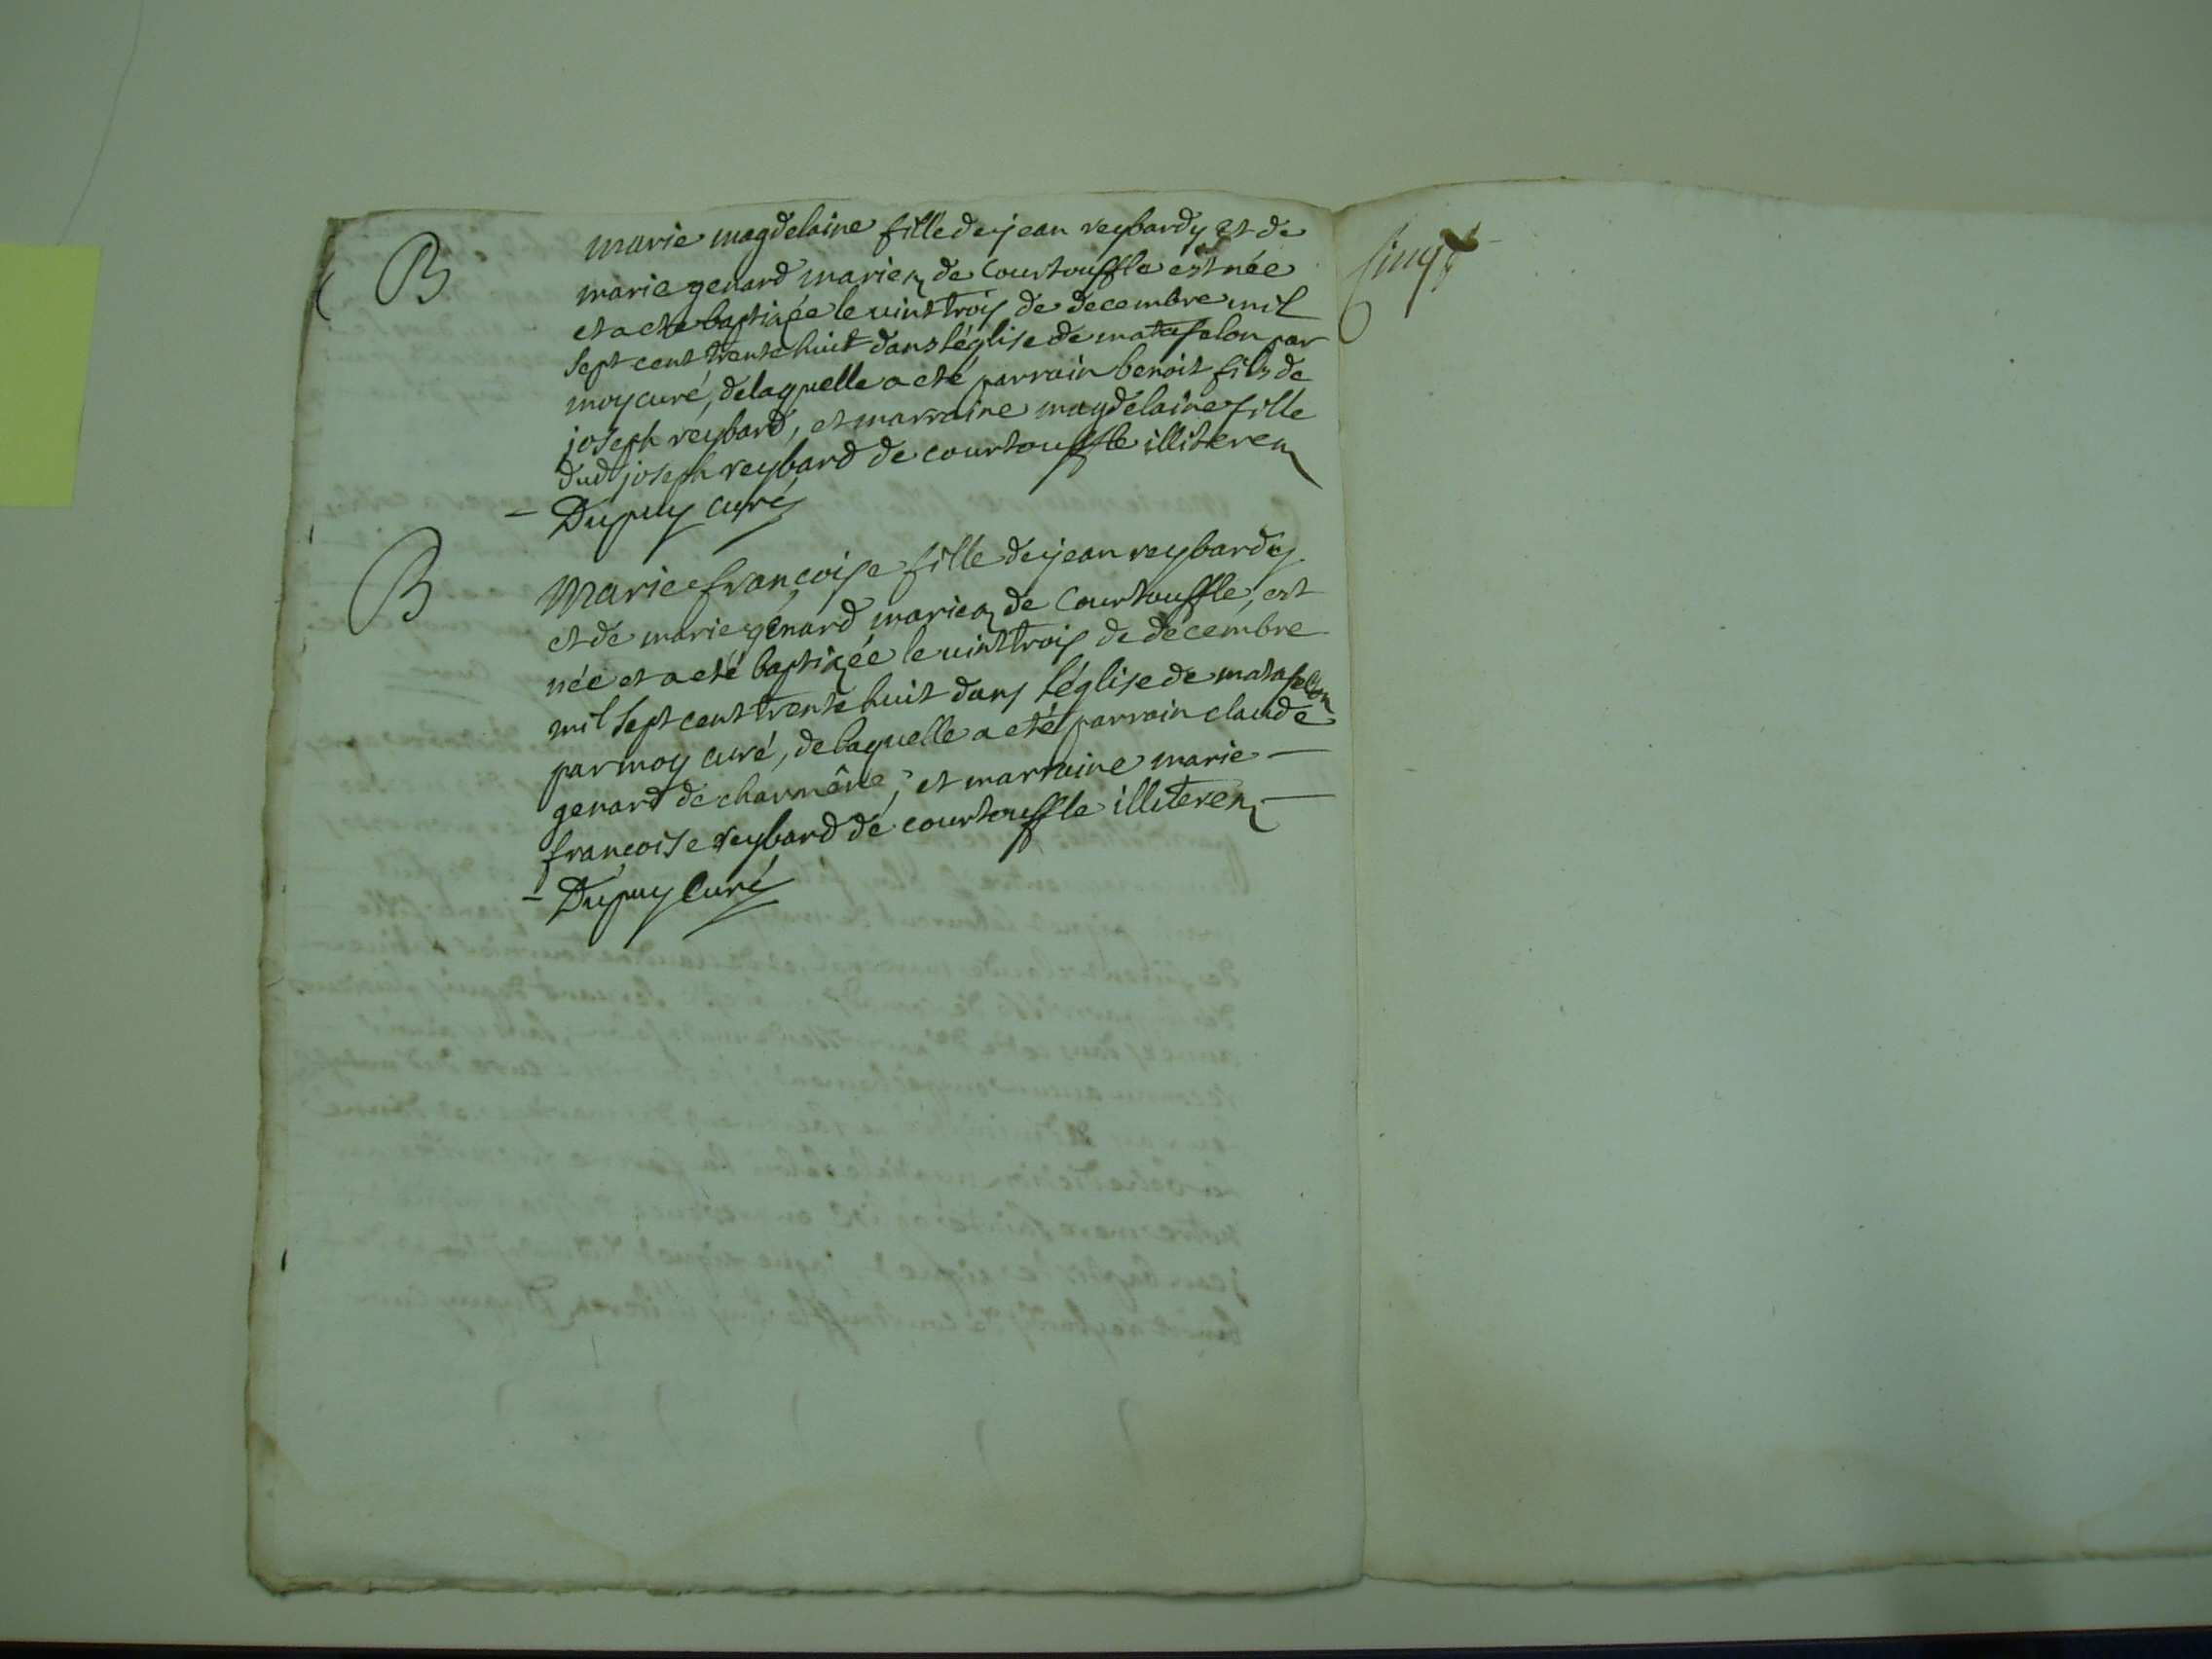 B
marie magdelaine fille de jean reybard et de
marie genard mariez de Courtouffle est née
et a été baptizée le vint trois de decembre mil
sept cent trente huit dans l'église de matafelon par
moy curé, de laquelle a eté parrain benoit fils de
joseph reybard, et marraine magdelaine fille
dud joseph reybard de courtouffle illiterez
- Dupuy curé
B
Marie françoise fille de jean reybard
et de marie genard mariez de Courtouffle, est
née et a eté baptizée le vint trois de decembre
mil sept cent trente huit dans l'église de matafelon
par moy curé, de laquelle a eté parrain claude
genard de charmêne, et marraine marie -
françoise reybard de courtouffle illiterez -
- Dupuy Curé